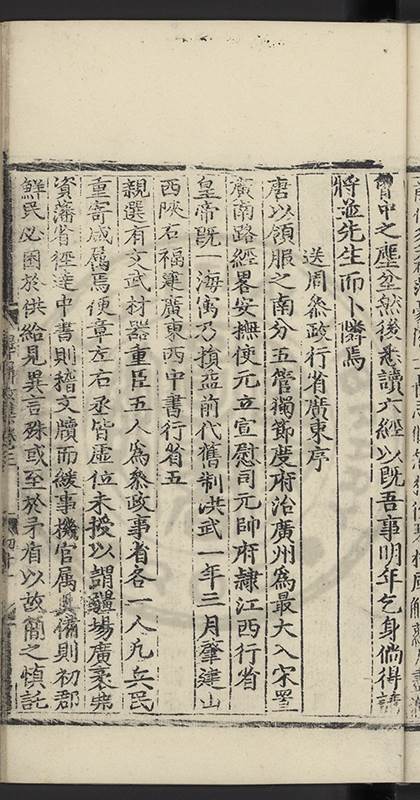 胷中之塵坌然後悉讀六經以既吾事明年乞身倘得請
將並先生而卜鄰焉
送周叅政行省廣東序
唐以領服之南分五管獨節度府治廣州爲最大入宋置
廣南路經畧安撫使元立宣慰司元帥府隷江西行省
皇帝既一海㝢乃損益前代舊制洪武二年三月肇建山
西陝右福建廣東西中書行省五
親選有文武材器重臣五人爲叅政事省各一人凡兵民
重寄咸屬焉使章左右丞皆虛位未授以謂疆場廣袤
資藩省徑達中書則稽文牘而緩事機官属具備則初郡
鮮民必困於供給見異言殊或至於矛盾以故簡之慎託